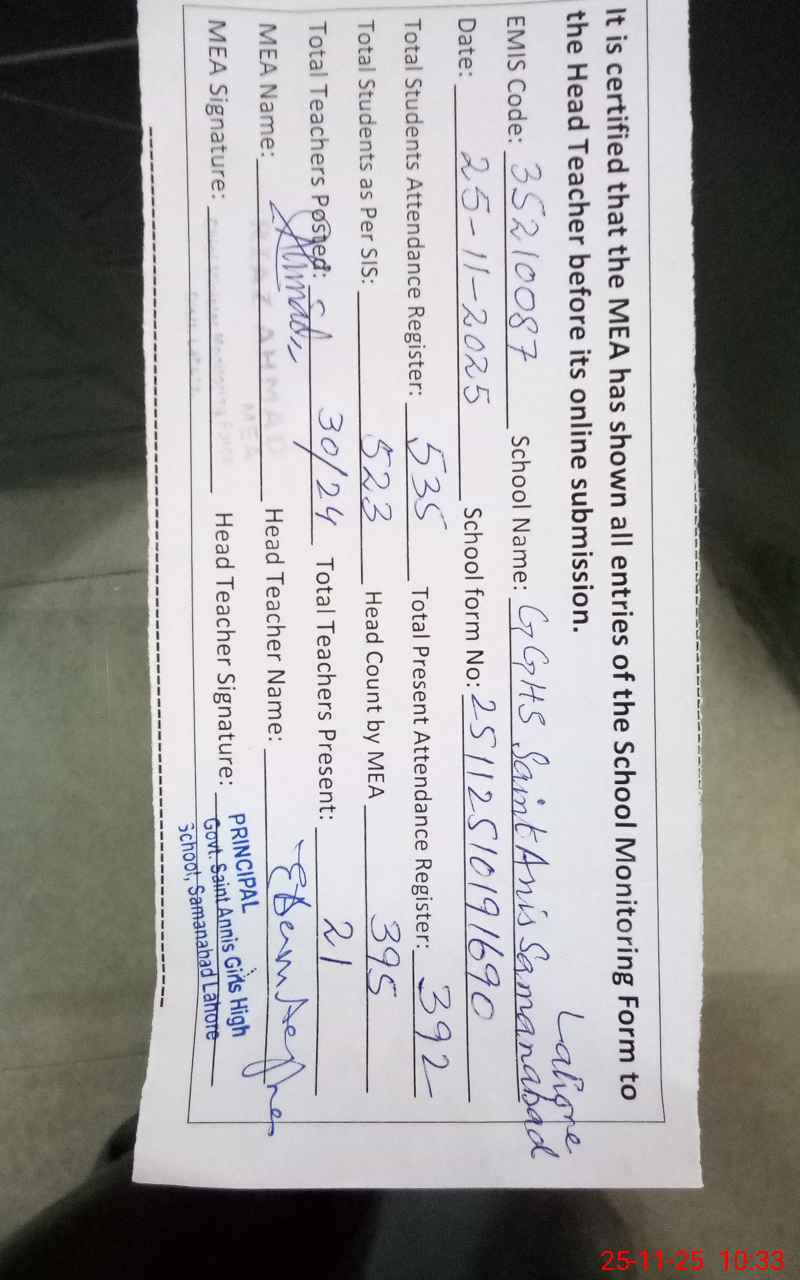 It is certified that the MEA has shown all entries of the School Monitoring Form to
the Head Teacher before its online submission.
EMIS Code: 35210087 School Name: GGHS Saint Anis Samanabad
Lahore
Date: 25-11-2025 School form No: 25112510191690
Total Students Attendance Register: 535 Total Present Attendance Register: 392
Total Students as Per SIS: 523 Head Count by MEA 395
Total Teachers Posted: 30/24 Total Teachers Present: 21
MEA Name: Head Teacher Name:
AHMAD
MEA
MEA Signature: Head Teacher Signature:
PRINCIPAL
Govt. Saint Annis Girls High
School, Samanabad Lahore
25-11-25 10:33